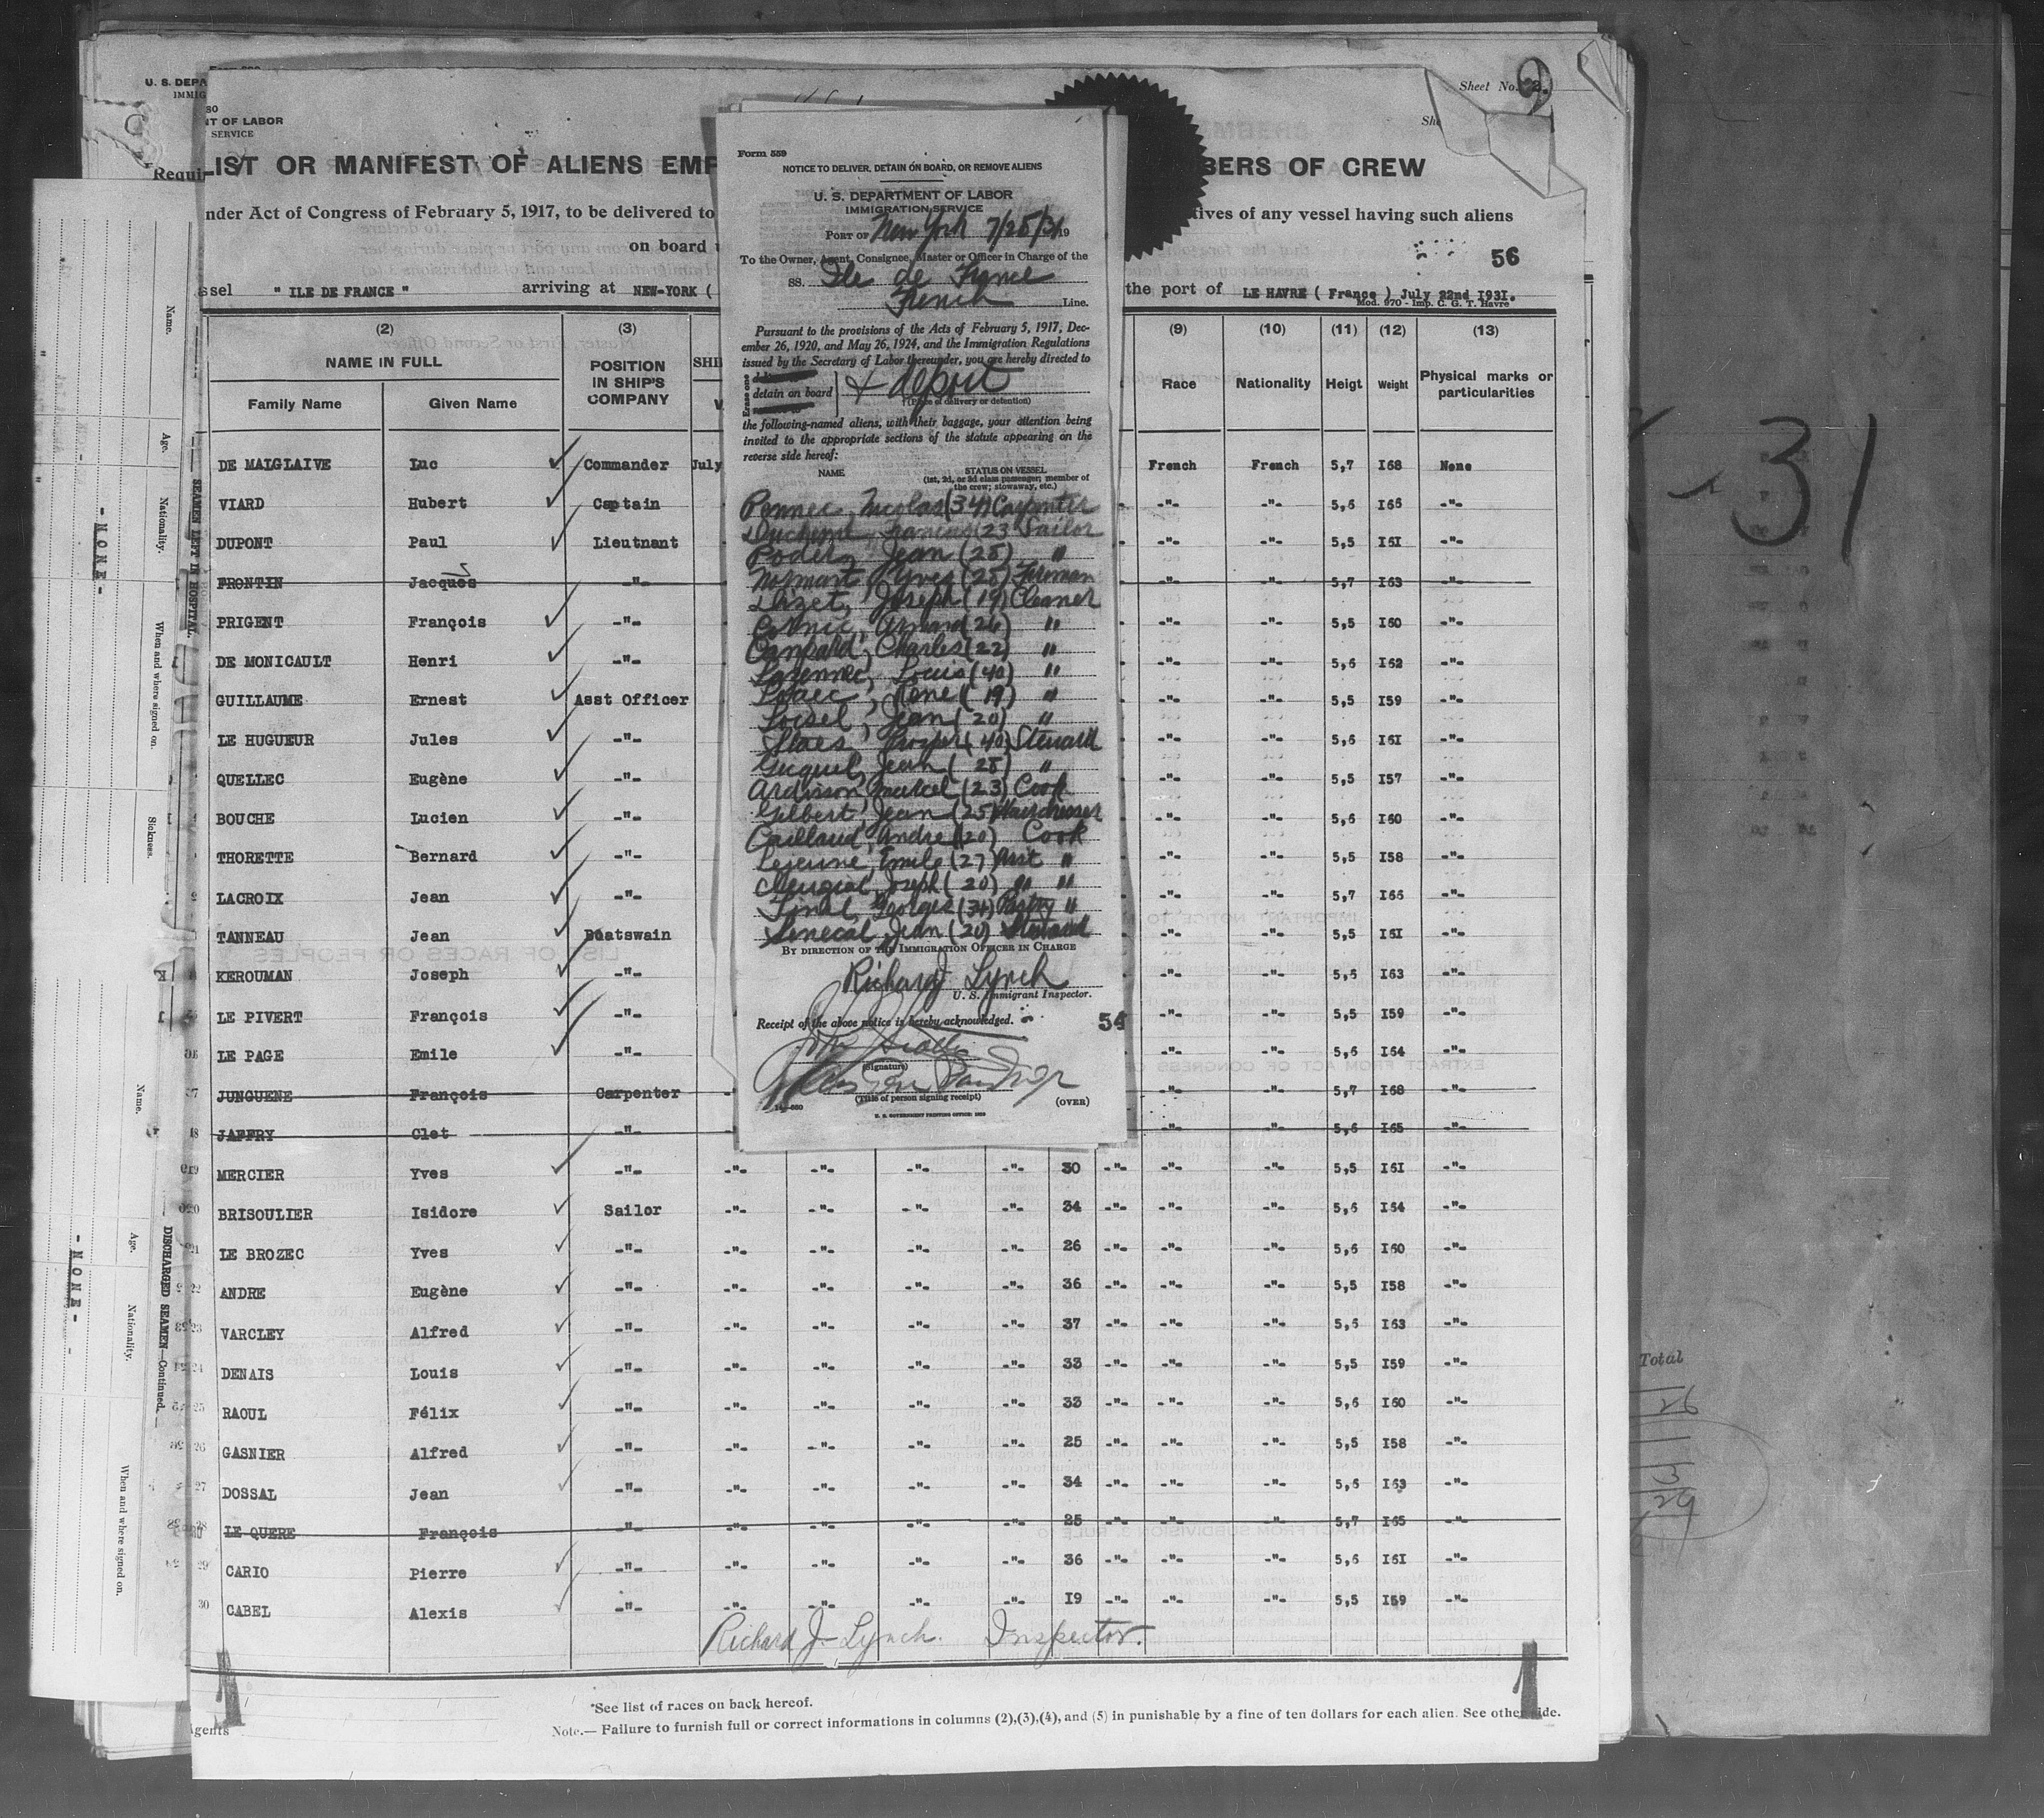 Sheet No. 2.
U. S. DEPA
IMMIG
NT OF LABOR
SERVICE
LIST OR MANIFEST OF ALIENS EMP
BERS OF CREW
Requi
nder Act of Congress of February 5, 1917, to be delivered to
tives of any vessel having such aliens
on board
56
ssel " ILE DE FRANCE " arriving at NEW-YORK (
the port of LE HAVRE ( France ) July 22nd I93I.
Mod. 970 - Imp. C. G. T. Havre
(2) (3) (9) (10) (11) (12) (13)
NAME IN FULL
Family Name Given Name
POSITION IN SHIP'S COMPANY
Race Nationality Heigt Weight Physical marks or particularities
DE MALGLAIVE Luc Commander July French French 5,7 I68 None
VIARD Hubert Captain -"- -"- 5,6 I66 -"-
DUPONT Paul Lieutnant -"- -"- 5,5 I6I -"-
FRONTIN Jacques -"- -"- -"- 5,7 I63 -"-
PRIGENT François -"- -"- -"- 5,5 I60 -"-
DE MONICAULT Henri -"- -"- -"- 5,6 I62 -"-
GUILLAUME Ernest Asst Officer -"- -"- 5,5 I59 -"-
LE HUGUEUR Jules -"- -"- -"- 5,6 I6I -"-
QUELLEC Eugène -"- -"- -"- 5,5 I57 -"-
BOUCHE Lucien -"- -"- -"- 5,6 I60 -"-
THORETTE Bernard -"- -"- -"- 5,5 I58 -"-
LACROIX Jean -"- -"- -"- 5,7 I66 -"-
TANNEAU Jean Boatswain -"- -"- 5,5 I6I -"-
KEROUMAN Joseph -"- -"- -"- 5,6 I63 -"-
LE PIVERT François -"- -"- -"- 5,5 I59 -"-
LE PAGE Emile -"- -"- -"- 5,6 I64 -"-
JUNGUENE François Carpenter -"- -"- 5,7 I68 -"-
18 JAFFRY Clet -"- -"- -"- 5,6 I65 -"-
19 MERCIER Yves -"- -"- -"- -"- -"- 30 -"- -"- -"- 5,5 I6I -"-
20 BRISOULIER Isidore Sailor -"- -"- -"- -"- 34 -"- -"- -"- 5,6 I64 -"-
21 LE BROZEC Yves -"- -"- -"- -"- -"- 26 -"- -"- -"- 5,6 I60 -"-
22 ANDRE Eugène -"- -"- -"- -"- -"- 36 -"- -"- -"- 5,5 I58 -"-
23 VARCLEY Alfred -"- -"- -"- -"- -"- 37 -"- -"- -"- 5,6 I63 -"-
24 DENAIS Louis -"- -"- -"- -"- -"- 33 -"- -"- -"- 5,5 I59 -"-
25 RAOUL Félix -"- -"- -"- -"- -"- 33 -"- -"- -"- 5,6 I60 -"-
26 GASNIER Alfred -"- -"- -"- -"- -"- 25 -"- -"- -"- 5,5 I58 -"-
27 DOSSAL Jean -"- -"- -"- -"- -"- 34 -"- -"- -"- 5,6 I63 -"-
28 LE QUERE François -"- -"- -"- -"- -"- 25 -"- -"- -"- 5,7 I65 -"-
29 CARIO Pierre -"- -"- -"- -"- -"- 36 -"- -"- -"- 5,6 I6I -"-
30 CABEL Alexis -"- -"- -"- -"- -"- I9 -"- -"- -"- 5,5 I59 -"-
Richard J. Lynch. Inspector.
1 1
*See list of races on back hereof.
Note.— Failure to furnish full or correct informations in columns (2),(3),(4), and (5) in punishable by a fine of ten dollars for each alien. See other side.
Agents
Form 559
NOTICE TO DELIVER, DETAIN ON BOARD, OR REMOVE ALIENS
U. S. DEPARTMENT OF LABOR
IMMIGRATION SERVICE
PORT OF New York 7/28/31 19
To the Owner, Agent, Consignee, Master or Officer in Charge of the
SS. Ile de France
French Line.
Pursuant to the provisions of the Acts of February 5, 1917, Dec-
ember 26, 1920, and May 26, 1924, and the Immigration Regulations
issued by the Secretary of Labor thereunder, you are hereby directed to
Erase one
detain on board } & deport
(Place of delivery or detention)
the following-named aliens, with their baggage, your attention being
invited to the appropriate sections of the statute appearing on the
reverse side hereof:
NAME STATUS ON VESSEL
(1st, 2d, or 3d class passenger; member of
the crew; stowaway, etc.)
Pennec, Nicolas (34) Carpenter
Duchene, Francois (23 Sailor
Poder, Jean (28) "
Normant, Yves (28) Fireman
Dizet, Joseph (19) Cleaner
Cornic, Armand (26) "
Canpard, Charles (22) "
Lozennec, Louis (40) "
Rene (19) "
Loisel, Jean (20) "
Staes, Prosper (40) Steward
Guquel, Jean (28) "
Ardisson, Marcel (23) Cook
Gilbert, Jean (25) Hairdresser
Caillaud, Andre (20) Cook
Lejeune, Emile (27) Asst "
Joseph (20) " "
Tinel, Georges (34) Pastry "
Senecal, Jean (20) Steward
BY DIRECTION OF THE IMMIGRATION OFFICER IN CHARGE
Richard J. Lynch
U. S. Immigrant Inspector.
Receipt of the above notice is hereby acknowledged.
54
(Signature)
(Title of person signing receipt)
14—660 (OVER)
U. S. GOVERNMENT PRINTING OFFICE: 1929
Name. Age. Nationality. When and where signed on. Sickness.
SEAMEN LEFT IN HOSPITAL
- N O N E -
Name. Age. Nationality. When and where signed on.
DISCHARGED SEAMEN—Continued.
- N O N E -
31
Total